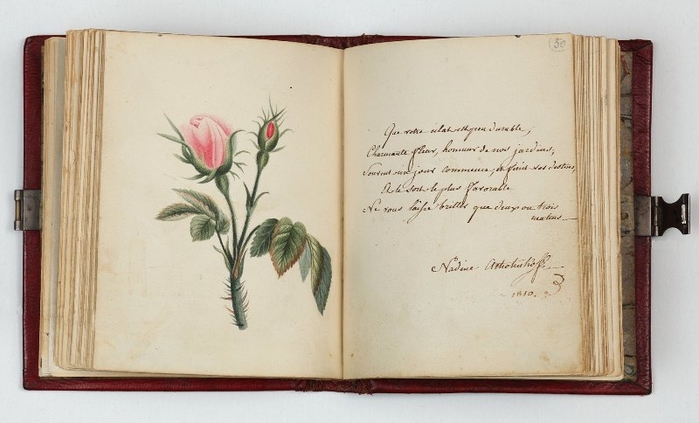 50
Que votre éclat est peu durable,
Charmante fleur, honneur de nos jardins,
Souvent un jour commence et finit vos destins,
Et le sort le plus favorable
Ne vous laisse briller que deux ou trois
matins.
Nadine
1810.